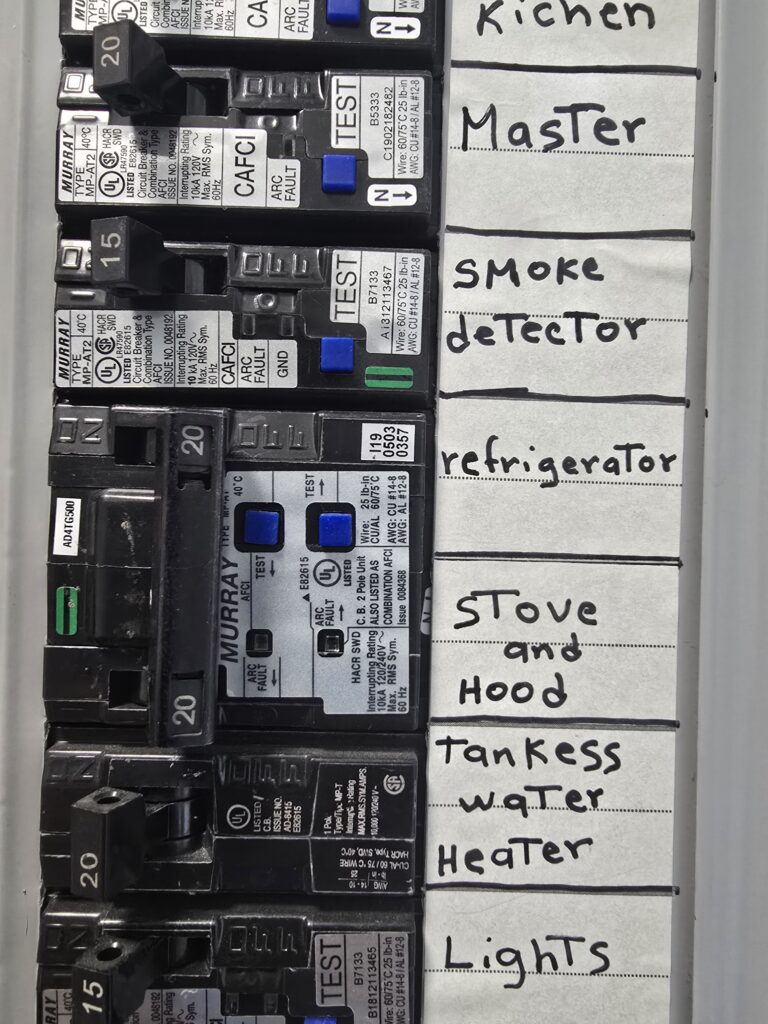 Kichen
20
MURRAY
TYPE MP-AT2
40°C
HACR
SWD
LR47590
LISTED E82615
Circuit Breaker &
Combination Type
AFCI
ISSUE NO. 0048192
Interrupting Rating
10kA 120V~
Max. RMS Sym.
60Hz
CAFCI
ARC
FAULT
OFF
TEST
B5333
C1902182482
Wire: 60/75°C 25 lb-in
AWG: CU #14-8 / AL #12-8
N
MasTer
15
MURRAY
TYPE MP-AT2
40°C
HACR
SWD
LR47590
LISTED E82615
Circuit Breaker &
Combination Type
AFCI
ISSUE NO. 0048192
Interrupting Rating
10 kA 120V~
Max. RMS Sym.
60 Hz
CAFCI
ARC
FAULT
GND
OFF
TEST
B7133
A1312113467
Wire: 60/75°C 25 lb-in
AWG: CU #14-8 / AL #12-8
SMOKE
deTecTor
ON
20
OFF
I19
0503
0357
AD4TG500
MURRAY
AFCI
40°C
TEST
TEST
ARC
FAULT
ARC
FAULT
E82615
LISTED
HACR SWD
Interrupting Rating
10kA 120/240V~
Max. RMS Sym.
60 Hz
C.B. 2 Pole Unit
ALSO LISTED AS
COMBINATION AFCI
Issue 0084368
Wire: 25 lb-in
CU/AL 60/75°C
AWG: CU #14-8
AWG: AL #12-8
20
refrigeraTor
STove
and
HOOd
ON
20
OFF
LISTED
C.B.
ISSUE NO.
AD-8415
E82615
1 Pole
Type/Tipo MP-T
MAX.RMS.SYM.AMPS.
10,000 120/240 V~
HACR Type, SWD, 40°C
CU-AL 60 / 75 °C WIRE
AWG
14 - 10
Tankess
waTer
HeaTer
ON
15
OFF
MURRAY
TEST
B7133
B1812113465
Wire: 60/75°C 25 lb-in
AWG: CU #14-8 / AL #12-8
LighTs